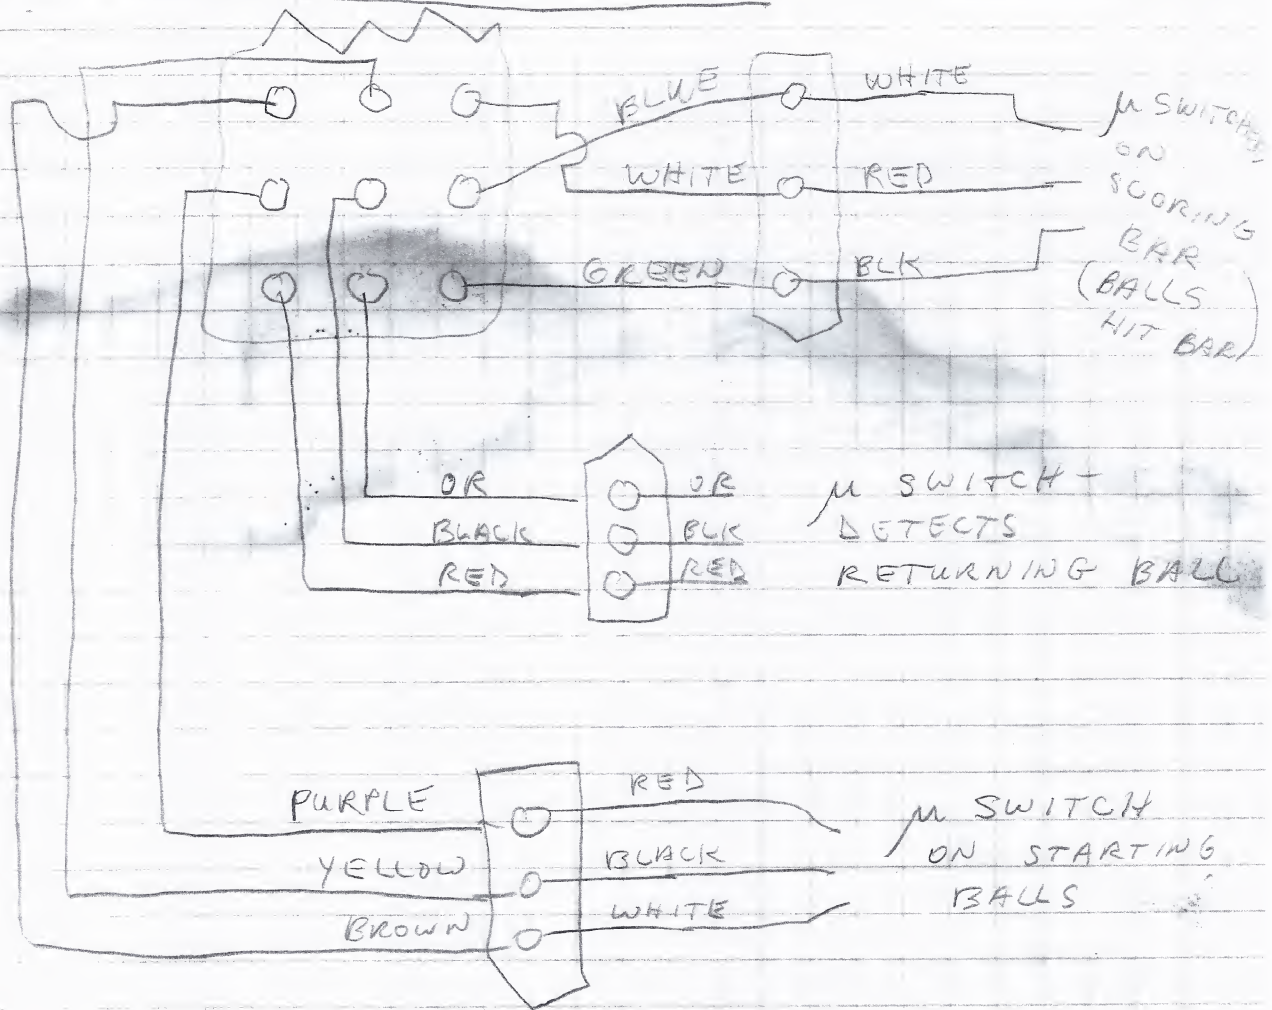 BLUE
WHITE
WHITE
RED
GREEN
BLK
µ SWITCHES
ON
SCORING
BAR
(BALLS
HIT BAR)
OR
BLACK
RED
OR
BLK
RED
µ SWITCH -
DETECTS
RETURNING BALL
PURPLE
YELLOW
BROWN
RED
BLACK
WHITE
µ SWITCH
ON STARTING
BALLS